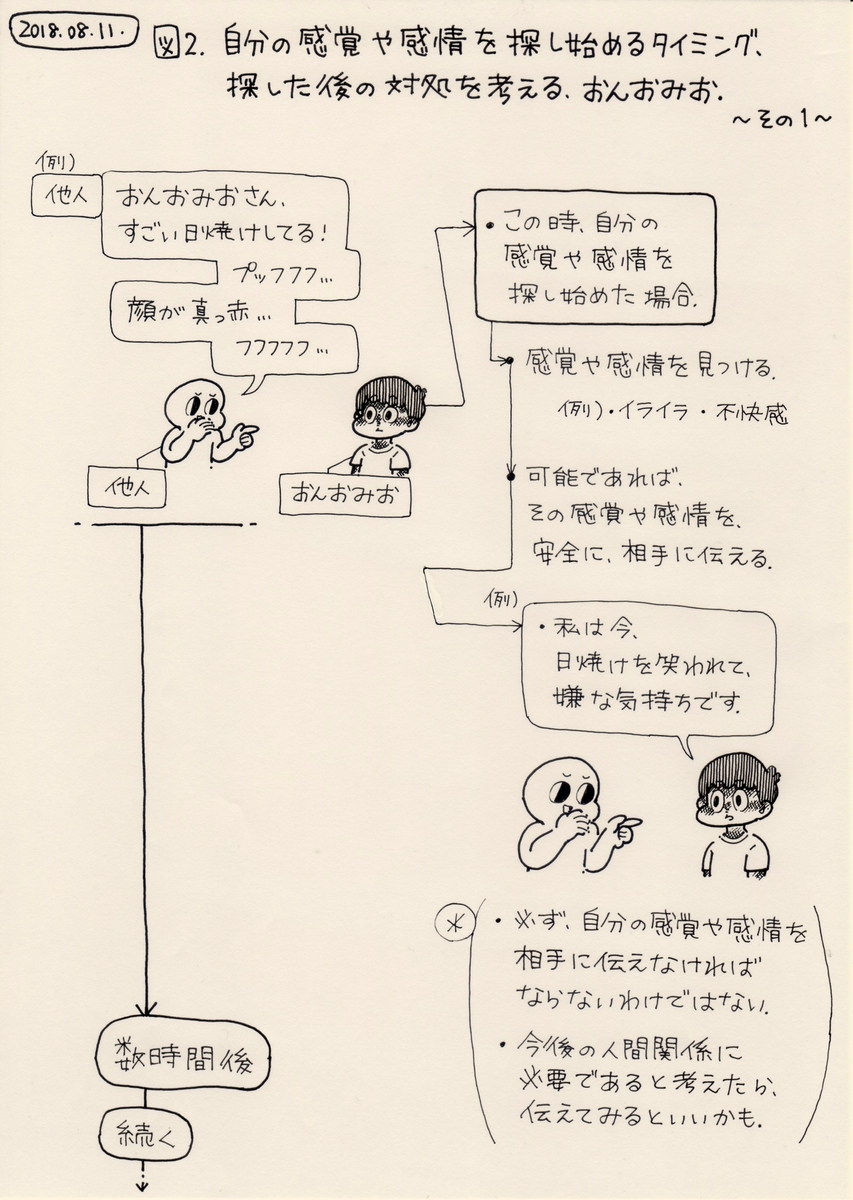 2018.08.11.
図2. 自分の感覚や感情を探し始めるタイミング、
探した後の対処を考える、おんおみお.
～その1～
例)
他人
おんおみおさん、
すごい日焼けしてる!
プッフフフ…
顔が真っ赤…
フフフフフ…
他人
おんおみお
・この時、自分の
感覚や感情を
探し始めた場合.
・感覚や感情を見つける.
例)・イライラ・不快感
・可能であれば、
その感覚や感情を、
安全に、相手に伝える.
例)
・私は今、
日焼けを笑われて、
嫌な気持ちです.
※
・必ず、自分の感覚や感情を
相手に伝えなければ
ならないわけではない.
・今後の人間関係に
必要であると考えたら、
伝えてみるといいかも.
数時間後
続く